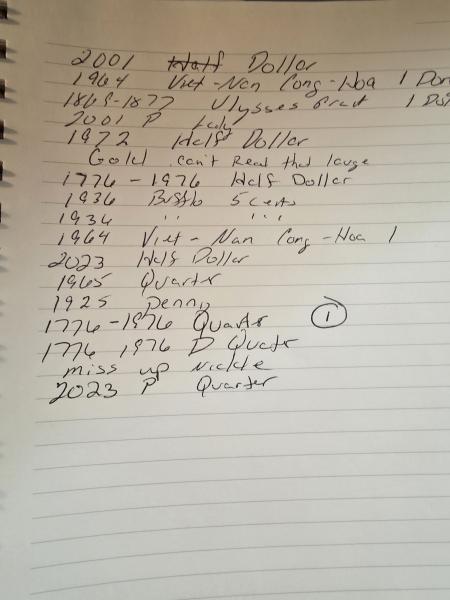 2001 Half Dollar
1964 Viet-Nan Cong-Hoa 1 Don
1869-1877 Ulysses Grant 1 Dol
2001 P
1972 Half Dollar
Gold can't Read that large
1776 - 1976 Half Dollar
1936 Bufflo 5 cents
1934 " " " "
1964 Viet-Nan Cong-Hoa 1
2023 Half Dollar
1965 Quarter
1925 Penny
1776-1976 Quarter 1
1776 1976 D Quater
miss up Nickle
2023 P Quarter